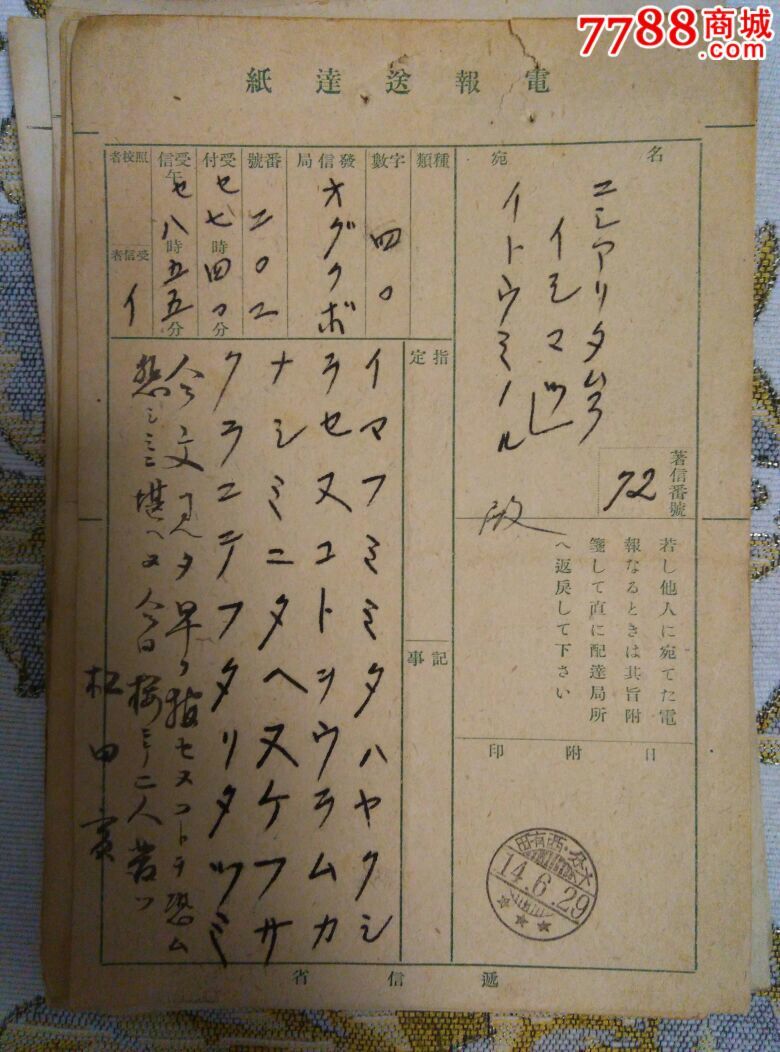 7788商城
.com
電報送達紙
名宛
ニシアリタムラ
イトウミノル
著信番號
72
種類
字數
四〇
發信局
オグクボ
番號
二〇二
受付
セ七時四〇分
受信
午セ八時五五分
照校者
受信者
イ
指定
記事
若し他人に宛てた電
報なるときは其旨附
箋して直に配達局所
へ返戻して下さい
日附印
14.6.29
イマフミミタハヤクシ
ラセヌコトヲウラムカ
ナシミニタヘヌケフサ
クラニテフタリタツミ
今文見タ早ク報セヌコトヲ恐ム
悲シミニ堪ヘヌ今日桜ニテ二人
松田
遞信省